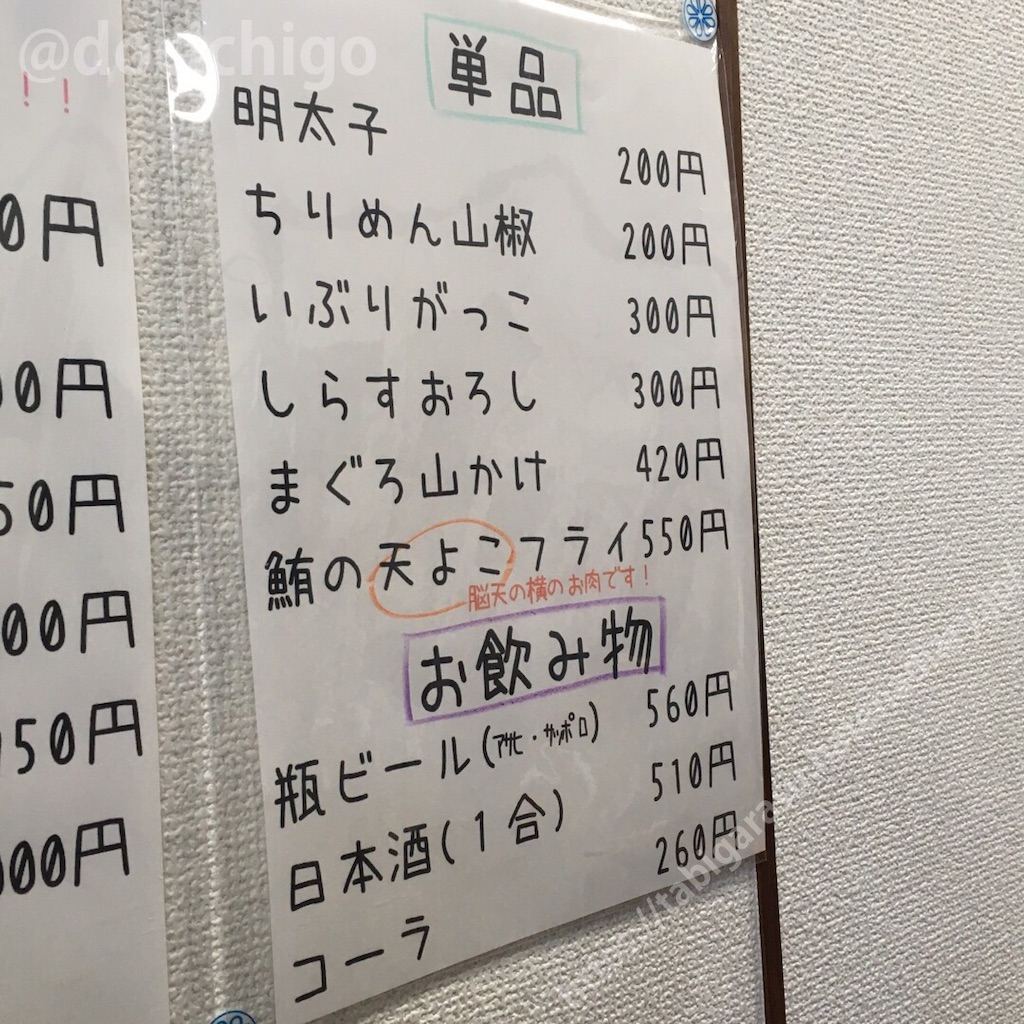 @do
chigo
!!
単品
明太子 200円
ちりめん山椒 200円
いぶりがっこ 300円
しらすおろし 300円
まぐろ山かけ 420円
鮪の天よこフライ 550円
脳天の横のお肉です！
お飲み物
瓶ビール(アサヒ・サッポロ) 560円
日本酒(1合) 510円
コーラ 260円
0円
00円
50円
00円
950円
000円